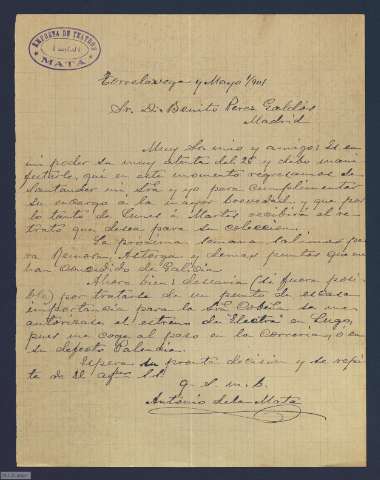 EMPRESA DE TEATROS
MATA
Torrelavega y Mayo 1/901
Sr. Dn. Benito Perez Galdós
Madrid
Muy Sr. mio y amigo: Es en
mi poder su muy atenta del 28 y debo mani
festarle, que en este momento regresamos de
Santander mi Sra. y yo para cumplimentar
su encargo a la mayor brevedad y que por
lo tanto de Lunes á Martes recibirá el re-
trato que desea para su coleccion.
La proxima semana salimos pa-
ra Reinosa, Astorga y demas puntos que me
han concedido de Galicia.
Ahora bien: desearia (si fuera posi-
ble) por tratarse de un punto de escasa
importancia para la Sra. Cobeña se me
autorizase el estreno de "Electra" en Lugo,
pues me coge al paso en la correría, ó en
su defecto Palencia.
Espera su pronta decision y se repi-
te de V. afmo. S.S.
q. s. m. b.
Antonio de la Mata